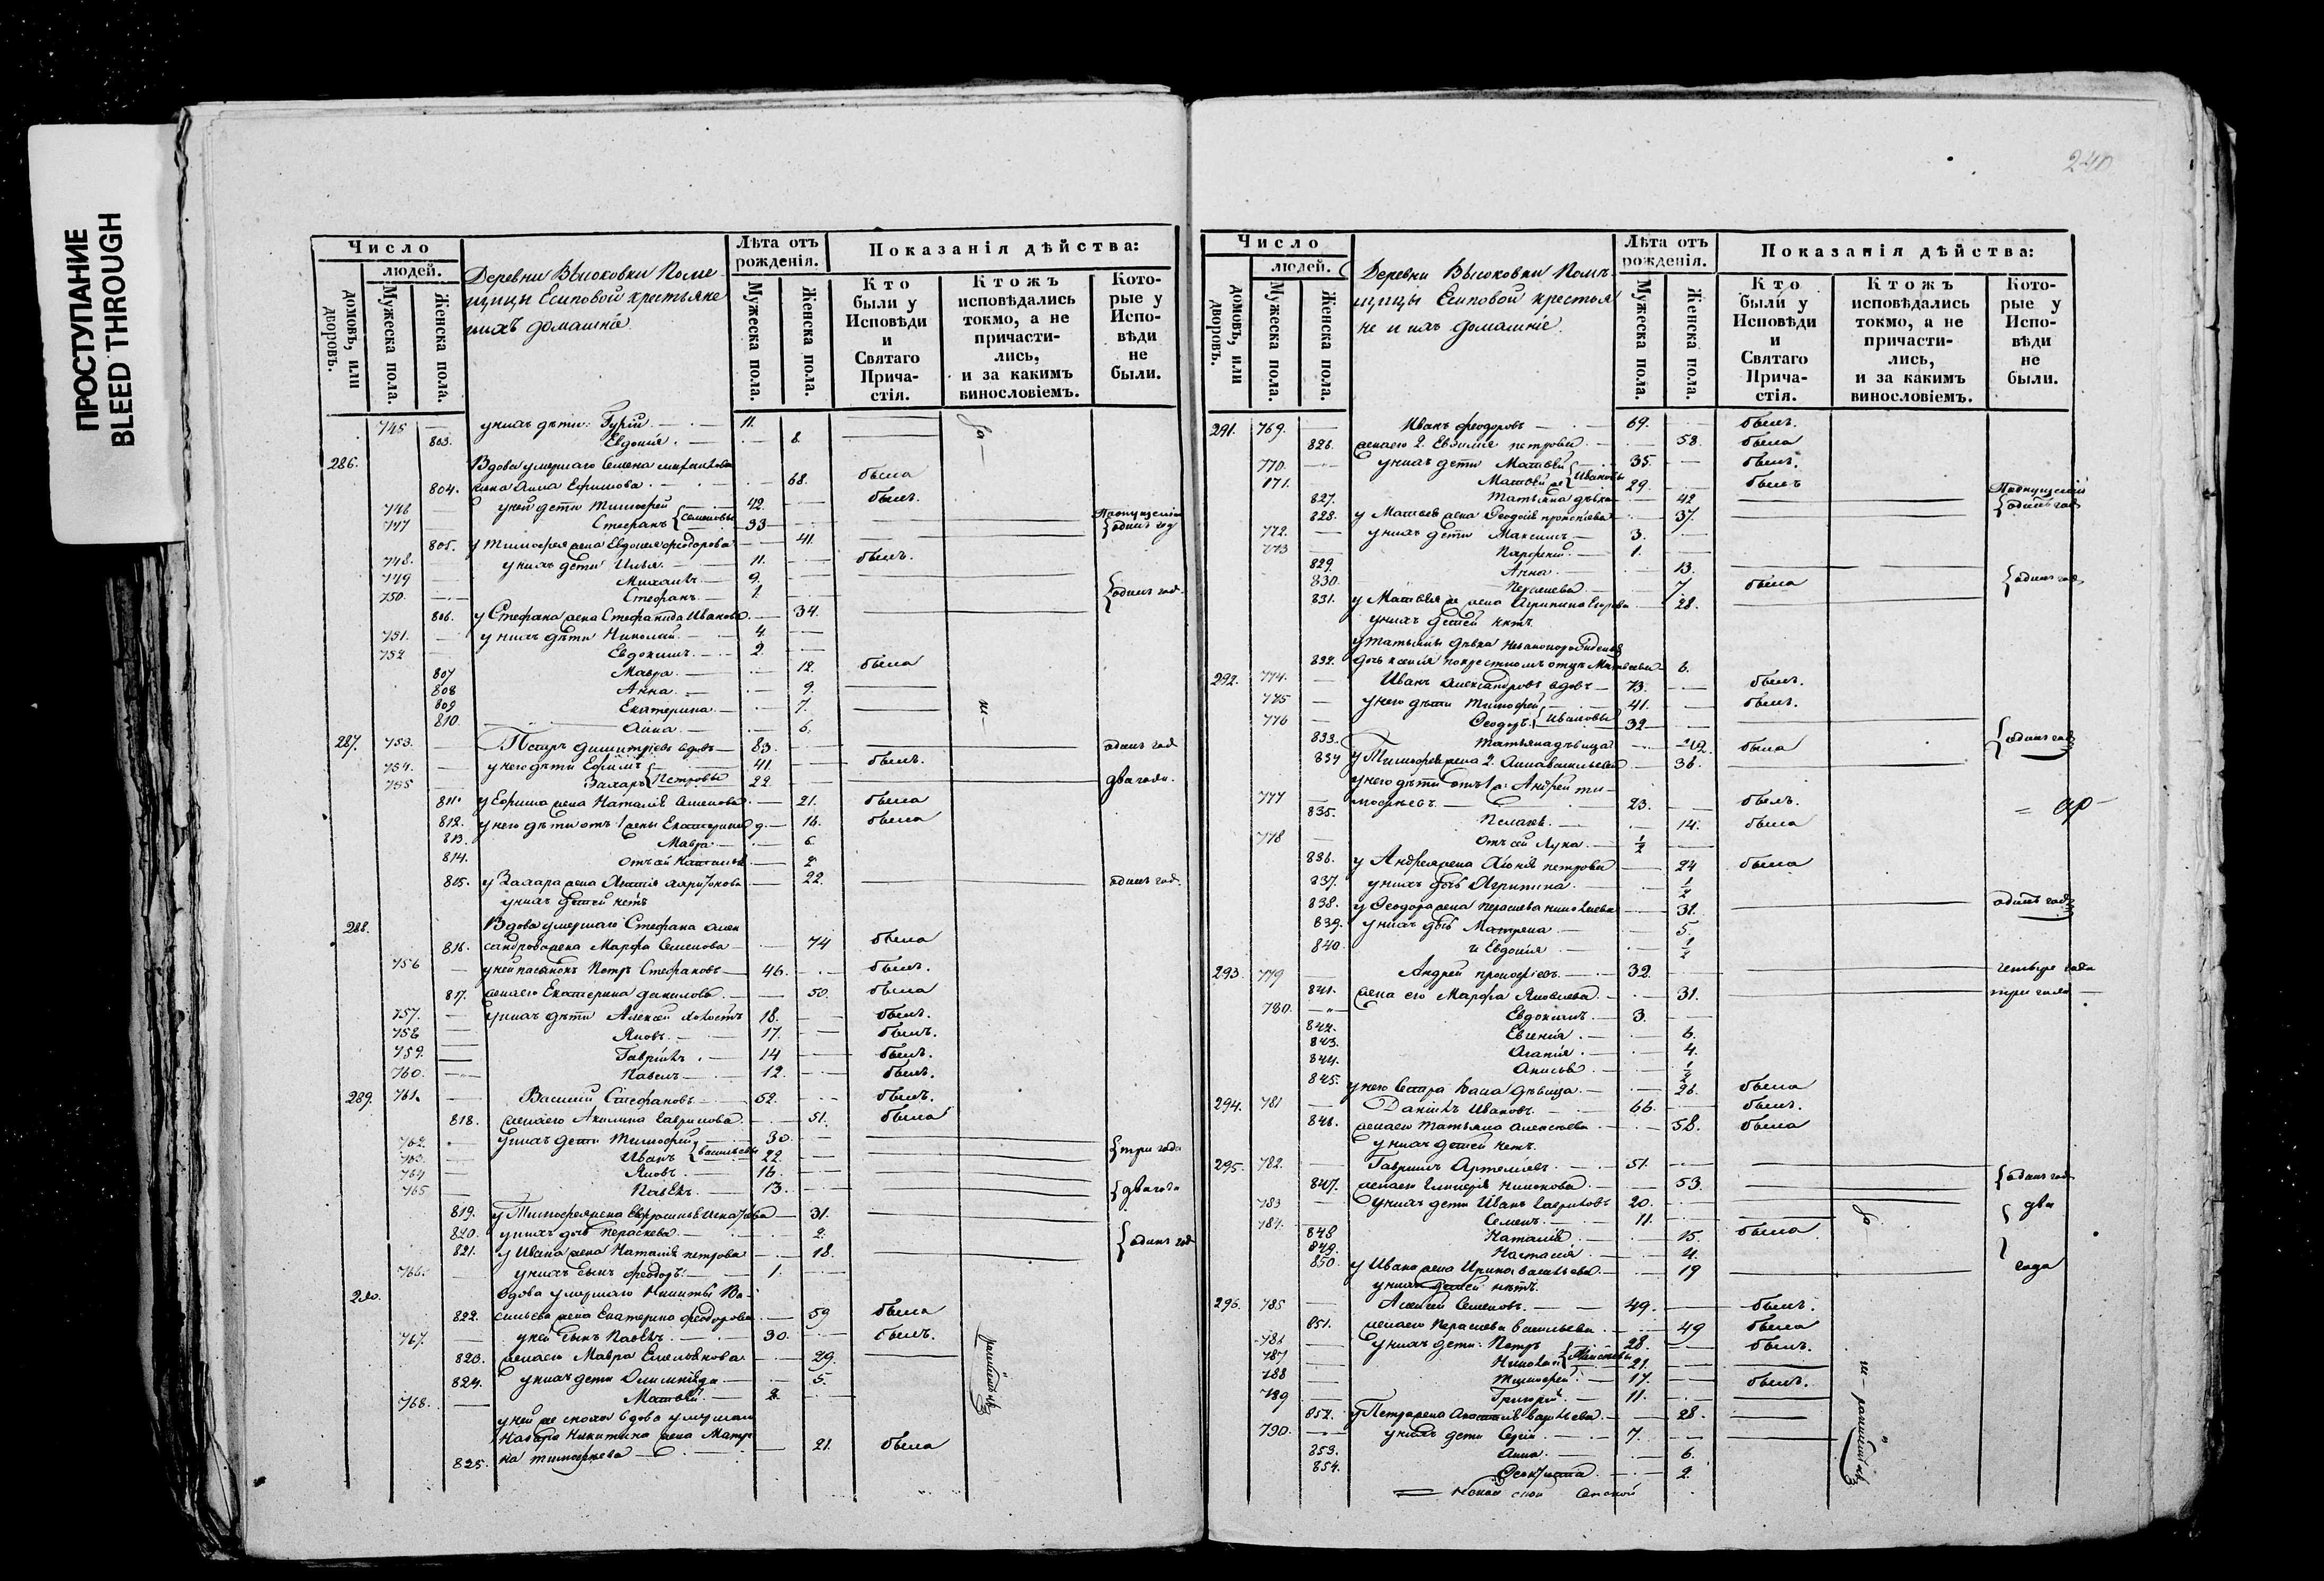 ПРОСТУПАНИЕ
BLEED THROUGH
Число
людей.
домовъ, или дворовъ.
Мужеска пола.
Женска пола.
Деревни Высоковки Поме
щицы Есиповой крестьяне
ихъ домашніе
Лѣта отъ рожденія.
Мужеска пола.
Женска пола.
Показанія дѣйства:
Кто были у Исповѣди и Святаго Прича-стія.
Ктожъ исповѣдались токмо, а не причасти-лись, и за какимъ винословіемъ.
Кото-рые у Испо-вѣди не были.
745 — у нихъ дѣти: Гурій — 11.
803. Евдокія — 8
286. Вдова умершаго Семена
804. жена Анна Ефимова — 68. была
746 у ней дети Тимофей — 42. былъ.
747 Стефанъ {Семеновы — 33 {одинъ годъ
805. у Тимофея жена Евдокия Феодорова — 41.
748. у нихъ дети Илья — 11. былъ.
749 Михаилъ — 9.
750. Стефанъ — 1. {одинъ год
806. у Стефана жена Стефанида Иванова — 34.
751. у нихъ дѣти Николай — 4.
752 Евдокимъ — 2.
807 Мавра — 12. была
808 Анна — 9.
809 Екатерина — 7.
810. Анна — 6.
287. 753. Петръ Димитріевъ вдовъ — 83. одинъ год
754. у него дѣти Ефимъ — 41. былъ.
755 Захаръ {Петровы — 22. два года.
811. у Ефима жена Наталія Семенова — 21. была
812. у него дѣти отъ 1 жены Екатерина — 16. была
813. Мавра — 6
814. отъ сей Наталья — 2
815. у Захара жена Харитонова — 22. одинъ год.
у нихъ детей нетъ
288. Вдова умершаго Стефана Алек
816. сандрова жена Марфа Семенова — 74 была
756 у ней пасынокъ Петръ Стефановъ — 46. былъ.
817. жена его Екатерина Данилова — 50. была
757. у нихъ дѣти Алексей холостъ 18. былъ.
758 Яковъ — 17. былъ.
759. Гавріилъ — 14 былъ.
760. Павелъ — 12. былъ.
289. 761. Василий Стефановъ — 52. былъ.
818. жена его Акилина Гаврилова — 51. была
762. у нихъ дети Тимофей — 30.
763. Иванъ {Васильевы — 22. {три года
764 Яковъ — 16.
765 Павелъ — 13. {два года
819. у Тимофея жена Евфросинья — 31.
820. у нихъ дочь Параскева — 2.
821. у Ивана жена Наталія Петрова — 18. {одинъ год
766. у нихъ сынъ Феодоръ — 1.
290. Вдова умершаго Никиты Ва-
822. сильева жена Екатерина Феодорова — 59 была
767. у ней сынъ Павелъ — 30. былъ.
823. жена его Мавра Емельянова — 29.
824. у нихъ дети Олимпіяда — 5.
768. Матвей — 2.
у ней же сноха вдова умершаго
Назара Никитина жена Матре
825. на Тимофеева — 21. была
240
Число
людей.
домовъ, или дворовъ.
Мужеска пола.
Женска пола.
Деревни Высоковки Помѣ
щицы Есиповой крестья
не и ихъ домашніе.
Лѣта отъ рожденія.
Мужеска пола.
Женска пола.
Показанія дѣйства:
Кто были у Исповѣди и Святаго Прича-стія.
Ктожъ исповѣдались токмо, а не причасти-лись, и за какимъ винословіемъ.
Кото-рые у Испо-вѣди не были.
291. 769. Иванъ Феодоровъ — 69. былъ.
826. жена его 2. Евфимия Петрова — 58. была
770. у нихъ дети Матвей — 35. былъ.
771. Матвей же {Ивановы 29. былъ
827. Татьяна дѣвка — 42
828. у Матвея жена Феодосія Прокопіева — 37. {одинъ год
772. у нихъ дети Максимъ — 3.
773 Парфений — 1.
829. Анна — 13.
830. Параскева — 7 была {одинъ год
831. у Матвея же жена Агрипина Егорова — 28.
у нихъ детей нѣтъ.
у Татьяны девки незаконорожденная
832. дочь Ксения по крестномъ отцѣ Матвеева 6.
292. 774. Иванъ Александровъ вдовъ — 73. былъ.
775 у него дѣти Тимофей — 41. былъ.
776 Феодоръ {Ивановы 32
833. Татьяна дѣвица — 42. была {одинъ год
834 у Тимофея жена 2. Анна Васильева — 36.
у него дѣти отъ 1й: Андрей Ти-
777 мофѣевъ — 23. былъ.
835. Пелагея — 14. была
778 отъ сей Лука — 1/2
836. у Андрея жена Петрова — 24 была
837. у нихъ дочь Агрипина — 1/2
838. у Феодора жена Параскева Николаева — 31. одинъ год
839. у нихъ дочь Матрена — 5.
840. и Евдокія — 1/2
293. 779 Андрей Прокофіевъ — 32. четыре года
841. жена его Марфа Яковлева — 31. три года
780. Евдокимъ — 3.
842. Евгенія — 6.
843. Агафія — 4.
844. Анисья — 1/2
845. у него сестра Васса дѣвица — 26. была
294. 781 Даніилъ Ивановъ — 66. былъ.
846. жена его Татьяна Алексеева — 58. была
у нихъ детей нетъ.
295. 782. Гавриилъ Артеміевъ — 51. {одинъ год
847. жена его Гликерія Никонова — 53.
783 у нихъ дети Иванъ Гавриловъ 20. { два
784. Семенъ — 11.
848 Наталія — 15. была
849. Настасія — 4.
850. у Ивана жена Ирина Васильева — 19 года
у нихъ детей нѣтъ.
296. 785 Алексей Семеновъ — 49. былъ.
851. жена его Параскева Васильева — 49 была
786 у нихъ дети: Петръ — 28. былъ.
787 Николай {Алексеевы 21.
788 Тимофей — 17. былъ.
789 Григорій — 11.
852. у Петра жена Анастасія Васильева — 28.
790. у нихъ дети Сергій — 7.
853. Анна — 6.
854. Феоктиста — 2.